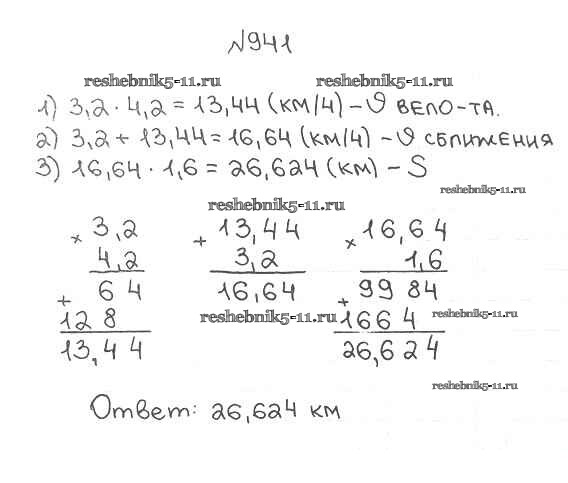 №941
reshebnik5-11.ru reshebnik5-11.ru
1) 3,2 · 4,2 = 13,44 (км/ч) – υ вело-та.
2) 3,2 + 13,44 = 16,64 (км/ч) – υ сближения
3) 16,64 · 1,6 = 26,624 (км) – S
reshebnik5-11.ru
reshebnik5-11.ru
× 3,2 + 13,44 × 16,64
4,2 3,2 1,6
+ 64 16,64 + 9984
128 reshebnik5-11.ru 1664 reshebnik5-11.ru
13,44 26,624
reshebnik5-11.ru
Ответ: 26,624 км